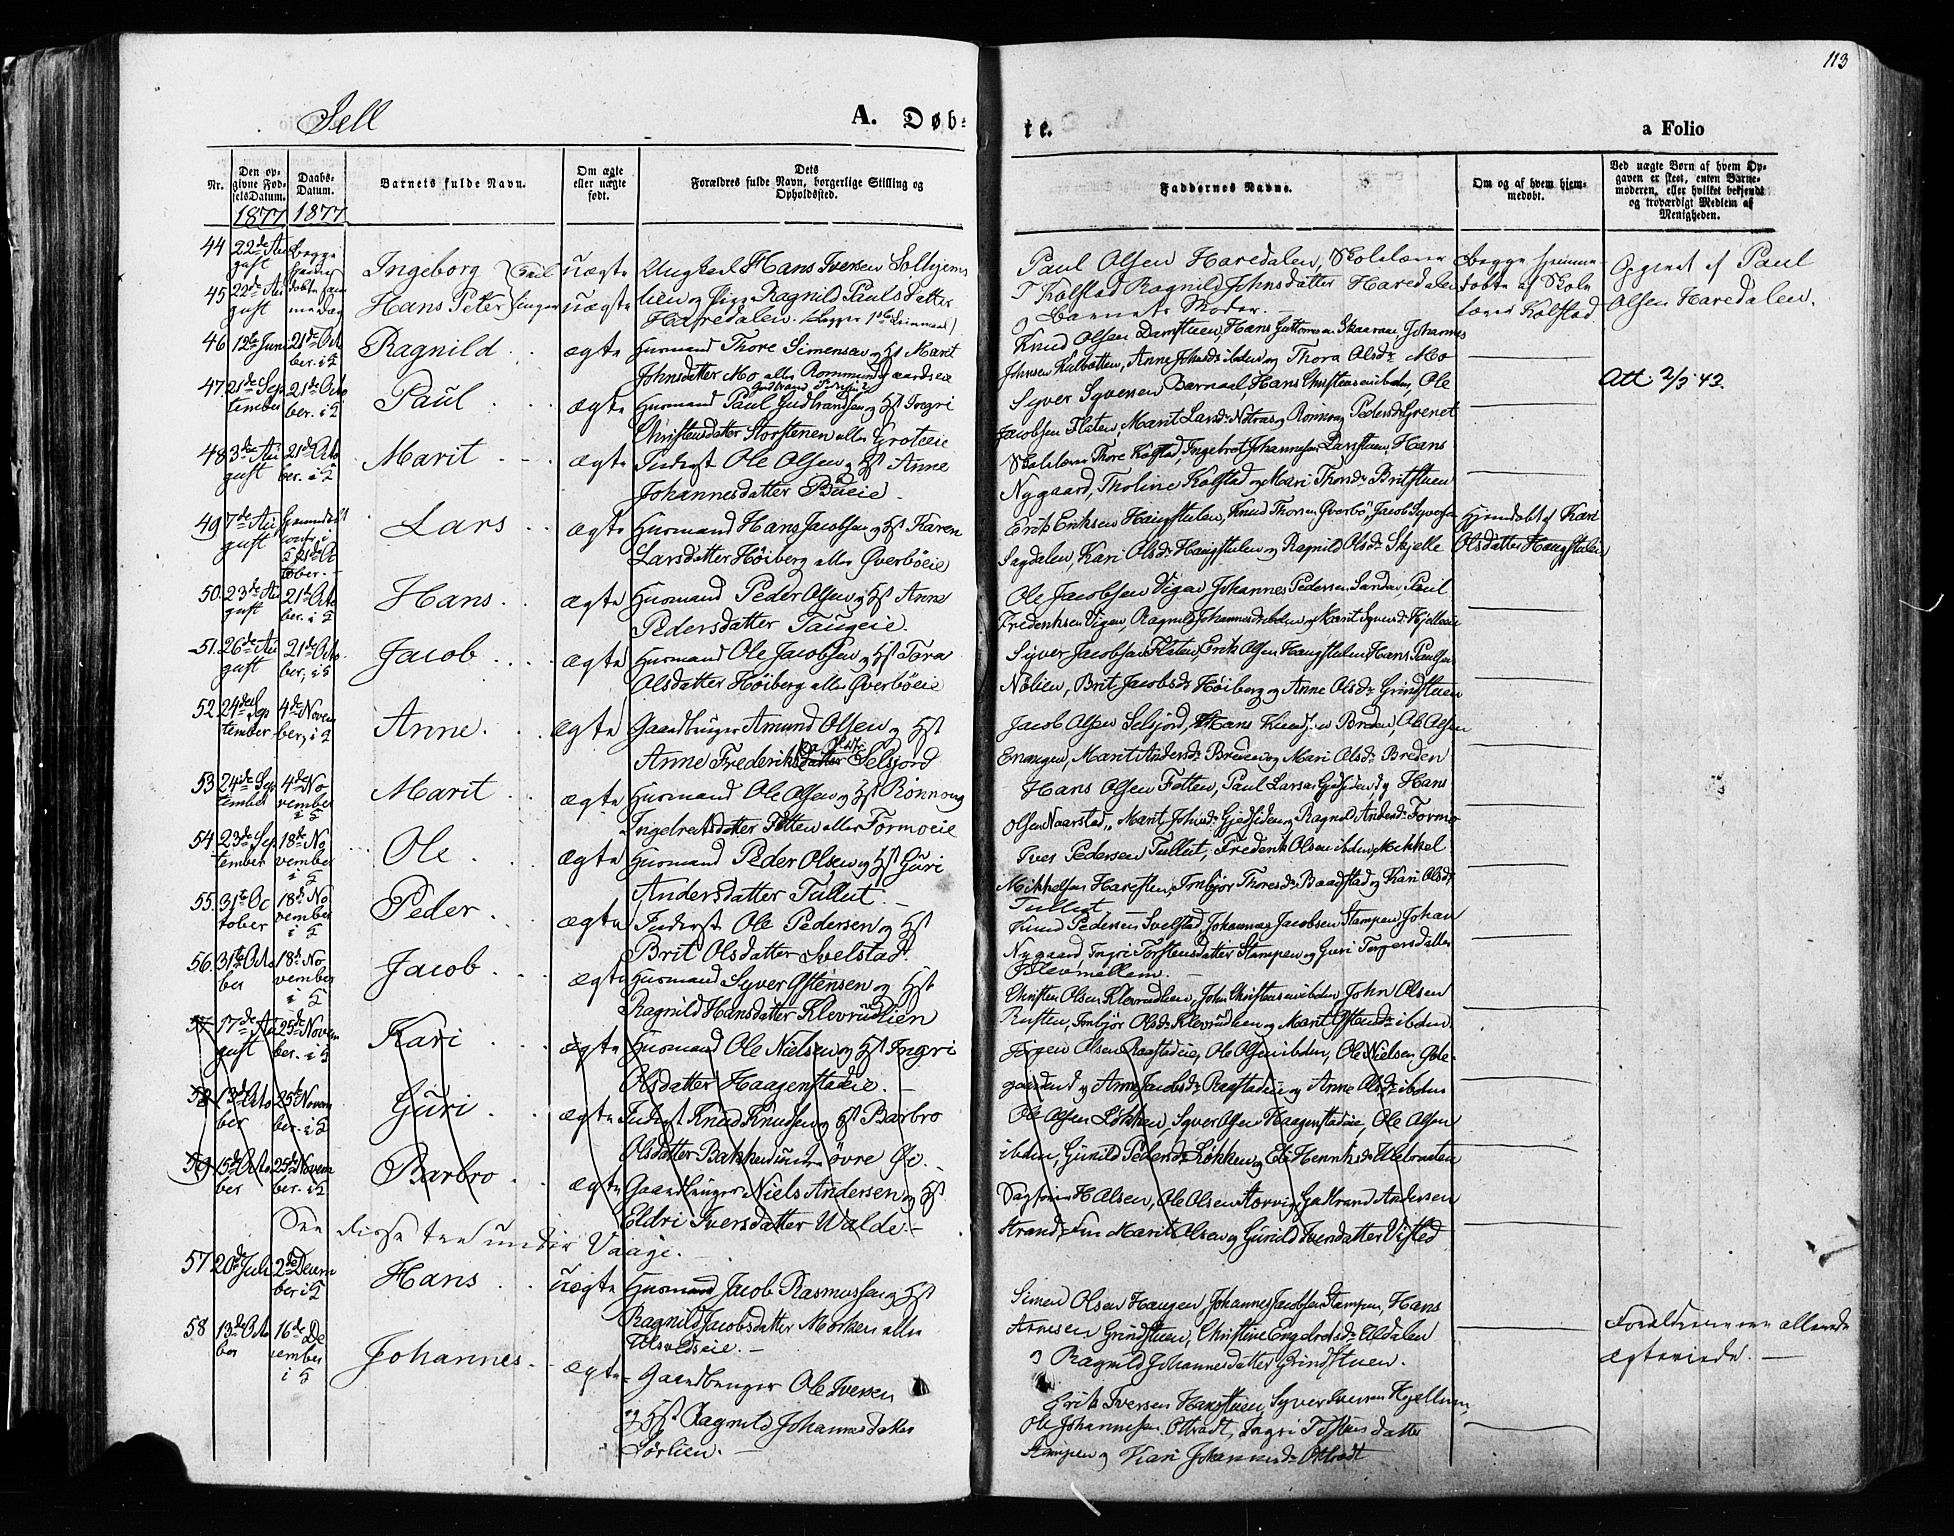 113
Sell
A. Døb-
te.
a Folio
Nr.
Den op-
givne Fød-
selsDatum.
1877
Daabs-
Datum.
1877
Barnets fulde Navn.
Om ægte
eller uægte
født.
Dets
Forældres fulde Navn, borgerlige Stilling og
Opholdssted.
Faddernes Navne.
Om og af hvem hjem-
medøbt.
Ved uægte Børn af hvem Op-
gaven er skeet, enten Barne-
moderen, eller hvilket bekjendt
og troværdigt Medlem af
Menigheden.
44 22de Au
gust
Begge
hjemme
døbte sam
me Dag
Ingeborg
Tvil
linger
uægte
Ungkarl Hans Iversen Solhjems
Paul Olsen Haredalen, Skolelærer
Begge hjemme
Opgivet af Paul
45 22de Au
gust
Hans Peter
uægte
lien og Pige Ragnild Pauls Datter
Haredalen.
T Kolstad Ragnild Johnsdatter Haredalen
og Barnets Moder.
døbte af Skole
lærer Kolstad
Olsen Haredalen.
46 12te Juni
21de Octo
ber. i K
Ragnild
ægte
Husmand Thore Simensen og H Marit
Johnsdatter Mo eller Rommundgaardseie
Knud Olsen Damstuen, Hans Guttormsen Skaaraae Johannes
Johnsen Kulbotten, Anne Johnsdr ibden og Thora Olsdr Mo
47. 21de Sep
tember
21de Octo
ber. i K
Paul
ægte
Husmand Paul Gudbrandsen og H Ingri
Christensdatter Storstenen eller Groteeie
Syver Syversen Barnael, Hans Christensen ibden, Ole
Jacobsen Flaten, Marit Larsdr Nitras og Rønnog Pedersdr Grenet
Att. 2/3 43.
48 3die Au
gust
21de Octo
ber. i K
Marit
ægte
Inderst Ole Olsen og H Anne
Johannesdatter Bueie.
Skolelærer Thore Kolstad, Ingebret Johannesen Larsstuen, Hans
Nygaard, Tholine Kolstad og Mari Thorsdr Britstuen
49 7de Au
gust
21de Oc
tober.
Lars
ægte
Husmand Hans Jacobsen og H Karen
Larsdatter Høiberg eller Øverbøeie
Erik Eriksen Haugstulen, Knud Thorsen Øverbø, Jacob Syversen
Sagdalen, Kari Olsdr Haugstulen og Ragnild Olsdr Skjelle
Hjemdøbt af Kari
Olsdatter Haugstulen
50. 23de Au
gust
21de Octo
ber. i K
Hans
ægte
Husmand Peder Olsen og H Anne
Pedersdatter Taugeie.
Ole Jacobsen Vigen Johannes Pedersen Sandan Paul
Frederiksen Vigen, Ragnild Johannesdr ibden og Marit Syversdr Hjelleeie
51. 26de Au
gust
21de Octo
ber, i K
Jacob
ægte
Husmand Ole Jacobsen og H Tora
Olsdatter Høiberg eller Øverbøeie
Syver Jacobsen Flaten, Erik Olsen Haugstulen, Hans Paulsen
Nølien, Brit Jacobsdr Høiberg og Anne Olsdr Grindstuen
52 24de Sep
tember
4de Novem
ber, i K
Anne
ægte
Gaardbruger Amund Olsen og H
Anne Frederiksdatter Selsjord
Jacob Olsen Selsjord, Hans Knudsen Breden, Ole Olsen
Enangen, Marit Andersdr Breden og Mari Olsdr Breden
53 24de Sep
tember
4de No
vember
i K
Marit
ægte
Husmand Ole Olsen og H Rønnoug
Ingebretsdatter Fotten eller Formoeie
Hans Olsen Fotten, Paul Larsen Gjesiden og Hans
Olsen Naarstad, Marit Johnsdr Gjedsiden og Ragnild Andersdr Formo
54. 23de Sep
tember
18de No
vember
i K
Ole
ægte
Husmand Peder Olsen og H Guri
Andersdatter Tullut.
Iver Pedersen Tullut, Frederik Olsen ibden, Mikkel
Mikkelsen Harestuen, Imbjør Thoresdr Baadstad og Kari Olsdr
Tullut
55. 31te Oc
tober
18de No
vember
i K
Peder
ægte
Inderst Ole Pedersen og H
Brit Olsdatter Svelstad.
Knud Pedersen Svelstad, Johannes Jacobsen Stampen, Johan
Nygaard, Ingri Torstensdatter Stampen og Guri Torgersdatter
Klevmellem.
56. 31te Octo
ber
18de No
vember
i K
Jacob
ægte
Husmand Syver Østensen og H
Ragnild Hansdatter Klevrudlien
Christen Olsen Klevrudlien, John Christensen ibden, John Olsen
Rusten, Imbjør Olsdr Klevrudlien og Marit Østensdr ibden
57 17de Au
gust
25de Novem
ber. i K
Kari
ægte
Husmand Ole Nielsen og H Ingri
Olsdatter Haagenstadeie.
Jørgen Olsen Ragstadeie, Ole Olsen ibden, Ole Nielsen
og Anne Jacobsdr Ragstadeie og Anne Olsdr ibden
58 13de Octo
ber
25de Novem
ber. i K
Guri
ægte
Inderst Knud Knudsen og H Barbro
Olsdatter Bakken under øvre Øi.
Ole Olsen Løkken, Syver Olsen Haagenstadeie, Ole Olsen
ibden, Gunild Pedersdr Løkken og Eli Henriksdr
59 15de Octo
ber
25de Novem
ber. i K
Barbro
ægte
Gaardbruger Niels Andersen og H
Eldri Iversdatter Walde.
Sagfører H Olsen, Ole Olsen Storvig, Gudbrand Andersen
Strand, Fru Marit Olsen og Gunild Iversdatter Visted
See disse tre under Vaage.
57 20de Juli
2den Decem
ber i K
Hans
uægte
Husmand Jacob Rasmussen og H
Ragnild Jacobsdatter Morken eller
Ulsvoldseie.
Simen Olsen Haugen, Johannes Jacobsen Stampen, Hans
Arnesen Grindstuen, Christine Engebretsdr Uldalen
og Ragnild Johannesdatter Grindstuen.
Forældrene ere allerede
ægteviede.
58 13de Octo
ber
16de De
cember
i K
Johannes
ægte
Gaardbruger Ole Iversen
og H Ragnild Johannesdatter
Sørlien.
Erik Iversen Haugstuen, Syver Iversen Hjellum,
Ole Johannesen Ottradt, Ingri Tostensdatter
Stampen og Kari Johannesdr Ottradt